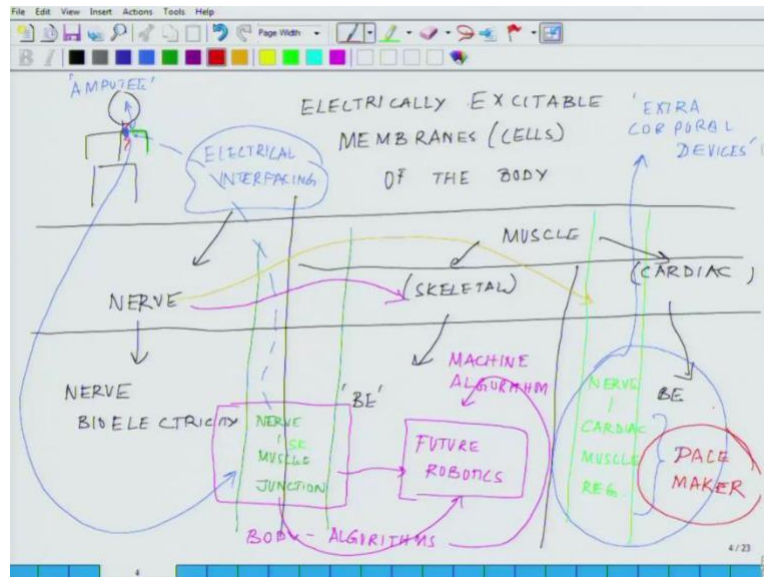 File Edit View Insert Actions Tools Help
Page Width
'AMPUTEE'
ELECTRICALLY EXCITABLE
MEMBRANES (CELLS)
OF THE BODY
'EXTRA
CORPORAL
DEVICES'
ELECTRICAL
INTERFACING
MUSCLE
NERVE
(SKELETAL)
(CARDIAC)
NERVE
BIOELECTRICITY
'BE'
MACHINE
ALGORITHM
BE
NERVE
/ SK.
MUSCLE
JUNCTION
FUTURE
ROBOTICS
NERVE
/
CARDIAC
MUSCLE
REG.
PACE
MAKER
BODY - ALGORITHMS
4/23
4